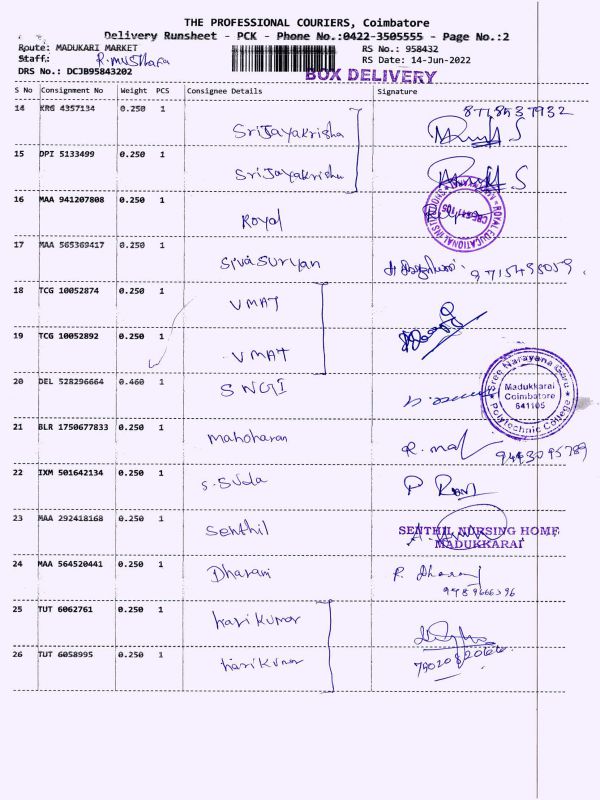 THE PROFESSIONAL COURIERS, Coimbatore
Delivery Runsheet - PCK - Phone No.:0422-3505555 - Page No.:2
Route: MADUKARI MARKET RS No.: 958432
Staff.: R.musthafa RS Date: 14-Jun-2022
DRS No.: DCJB95843202 BOX DELIVERY
S No Consignment No Weight PCS Consignee Details Signature
14 KRG 4357134 0.250 1 Srijayakrisha
15 DPI 5133499 0.250 1 Srijayakrisha
16 MAA 941207808 0.250 1 Royal
ROYAL EDUCATIONAL INSTITUTIONS
17 MAA 565369417 0.250 1 Sivasuryan
18 TCG 10052874 0.250 1 VMAT
19 TCG 10052892 0.250 1 VMAT
20 DEL 528296664 0.460 1 SNGI
Sree Narayana Guru
Madukkarai
Coimbatore
641105
Polytechnic College
21 BLR 1750677833 0.250 1 Mahoharan R. mal 9443095789
22 IXM 501642134 0.250 1 S. Suda P Rani
23 MAA 292418168 0.250 1 Senthil SENTHIL NURSING HOME
MADUKKARAI
24 MAA 564520441 0.250 1 Dharani
25 TUT 6062761 0.250 1 harikumar
26 TUT 6058995 0.250 1 harikumar